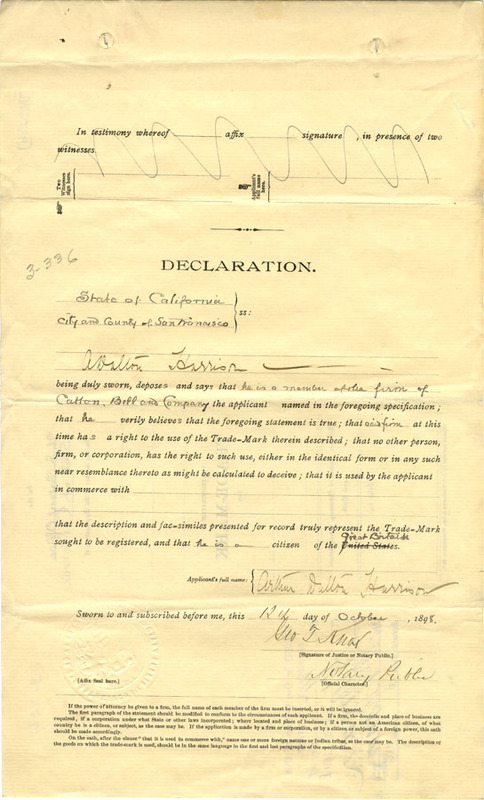 In testimony whereof affix signature , in presence of two
witnesses.
Two Witnesses sign here.
Applicant's full name here.
3-336
DECLARATION.
State of California
City and County of San Francisco } ss:
A Dalton Harrison
being duly sworn, deposes and says that he is a member of the firm of
Catton, Bell and Company the applicant named in the foregoing specification;
that he verily believes that the foregoing statement is true; that said firm at this
time has a right to the use of the Trade-Mark therein described; that no other person,
firm, or corporation, has the right to such use, either in the identical form or in any such
near resemblance thereto as might be calculated to deceive; that it is used by the applicant
in commerce with
that the description and fac-similes presented for record truly represent the Trade-Mark
Great Britain
sought to be registered, and that he is a citizen of the United States.
Applicant's full name: { Arthur Dalton Harrison
Sworn to and subscribed before me, this 12th day of October , 1898.
Geo T. Knox
[Signature of Justice or Notary Public.]
Notary Public
[Affix Seal here.]
[Official Character.]
If the power of attorney be given to a firm, the full name of each member of the firm must be inserted, or it will be ignored.
The first paragraph of the statement should be modified to conform to the circumstances of each applicant. If a firm, the domicile and place of business are
required; if a corporation under what State or other laws incorporated; where located and place of business; if a person not an American citizen, of what
country he is a citizen, or subject, as the case may be. If the application is made by a firm or corporation, or by a citizen or subject of a foreign power, this oath
should be made accordingly.
On the oath, after the clause "that it is used in commerce with," name one or more foreign nations or Indian tribes, as the case may be. The description of
the goods on which the trade-mark is used, should be in the same language in the first and last paragraphs of the specification.